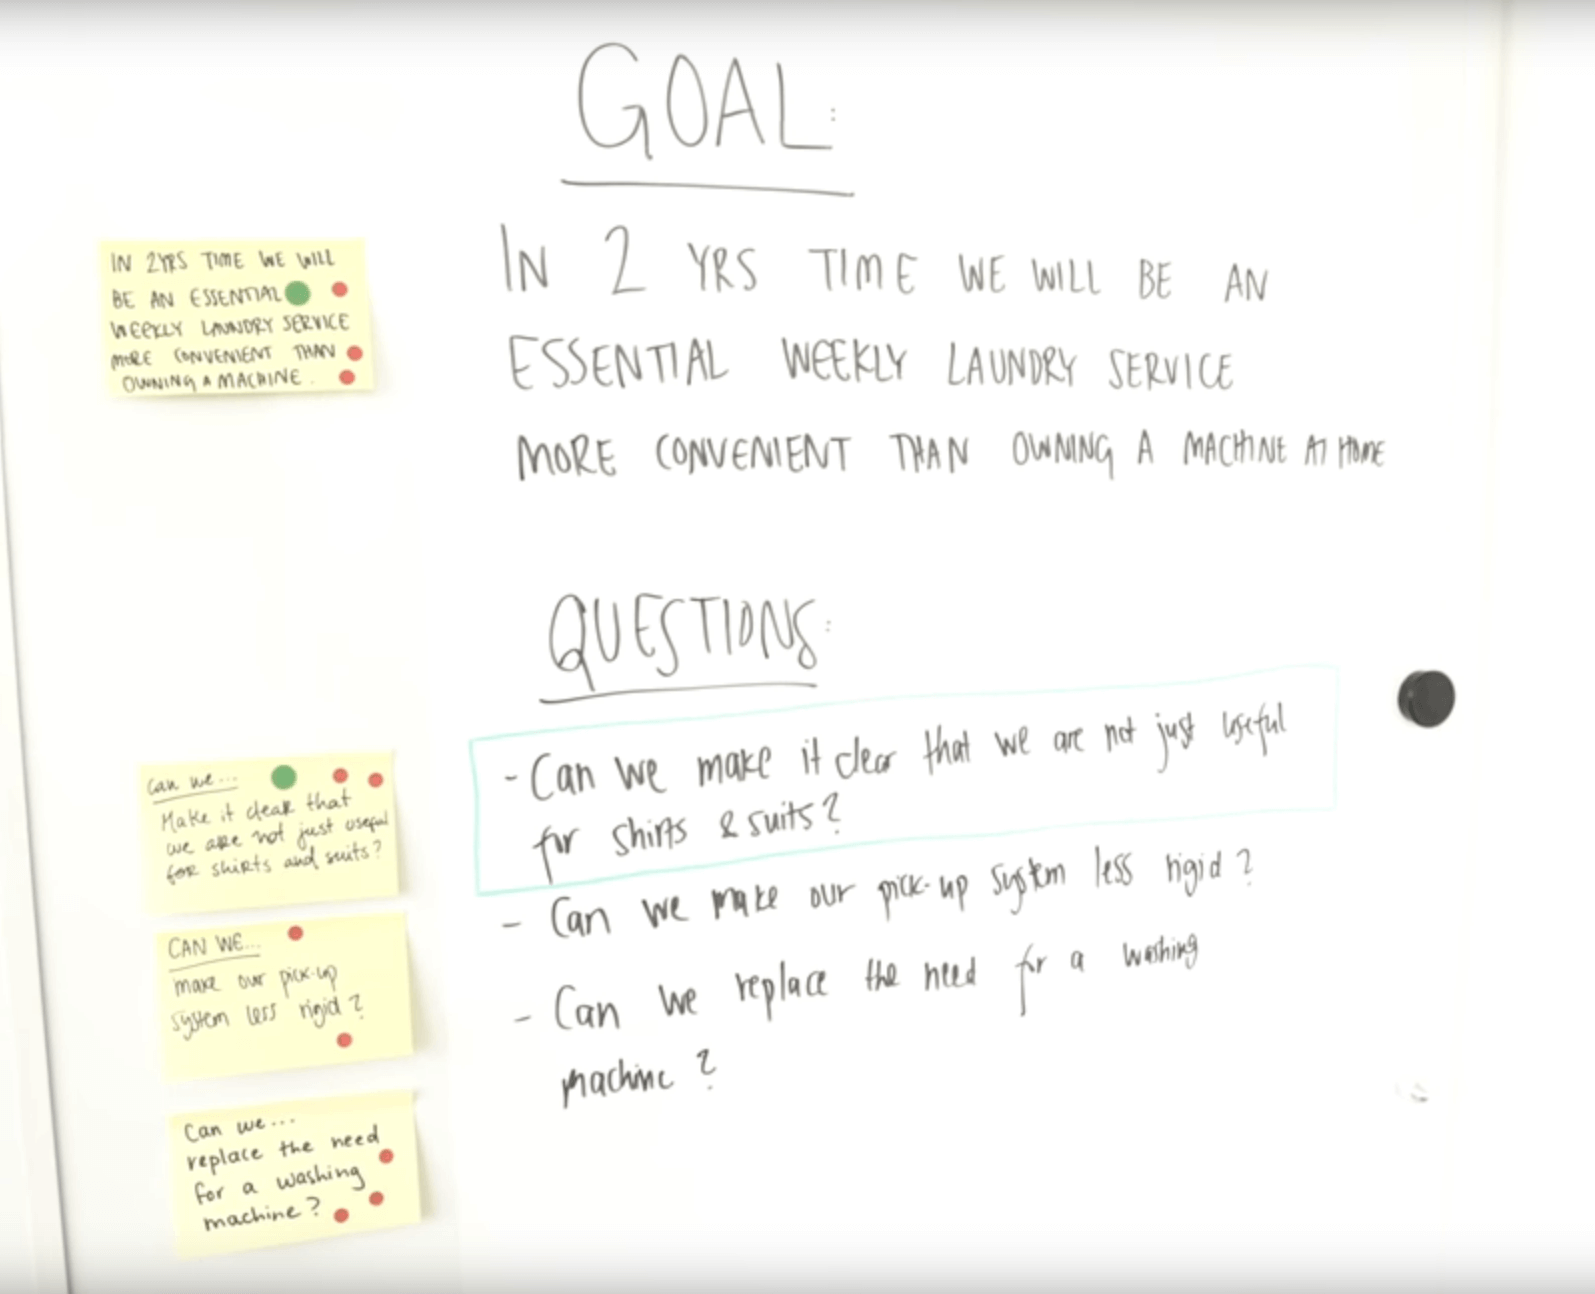 GOAL:
IN 2 YRS TIME WE WILL BE AN
ESSENTIAL WEEKLY LAUNDRY SERVICE
MORE CONVENIENT THAN OWNING A MACHINE AT HOME
IN 2YRS TIME WE WILL
BE AN ESSENTIAL
WEEKLY LAUNDRY SERVICE
MORE CONVENIENT THAN
OWNING A MACHINE.
QUESTIONS:
- Can we make it clear that we are not just useful
for shirts & suits?
- Can we make our pick-up system less rigid?
- Can we replace the need for a washing
machine?
Can we...
Make it clear that
we are not just useful
for shirts and suits?
CAN WE...
make our pick-up
system less rigid?
Can we...
replace the need
for a washing
machine?